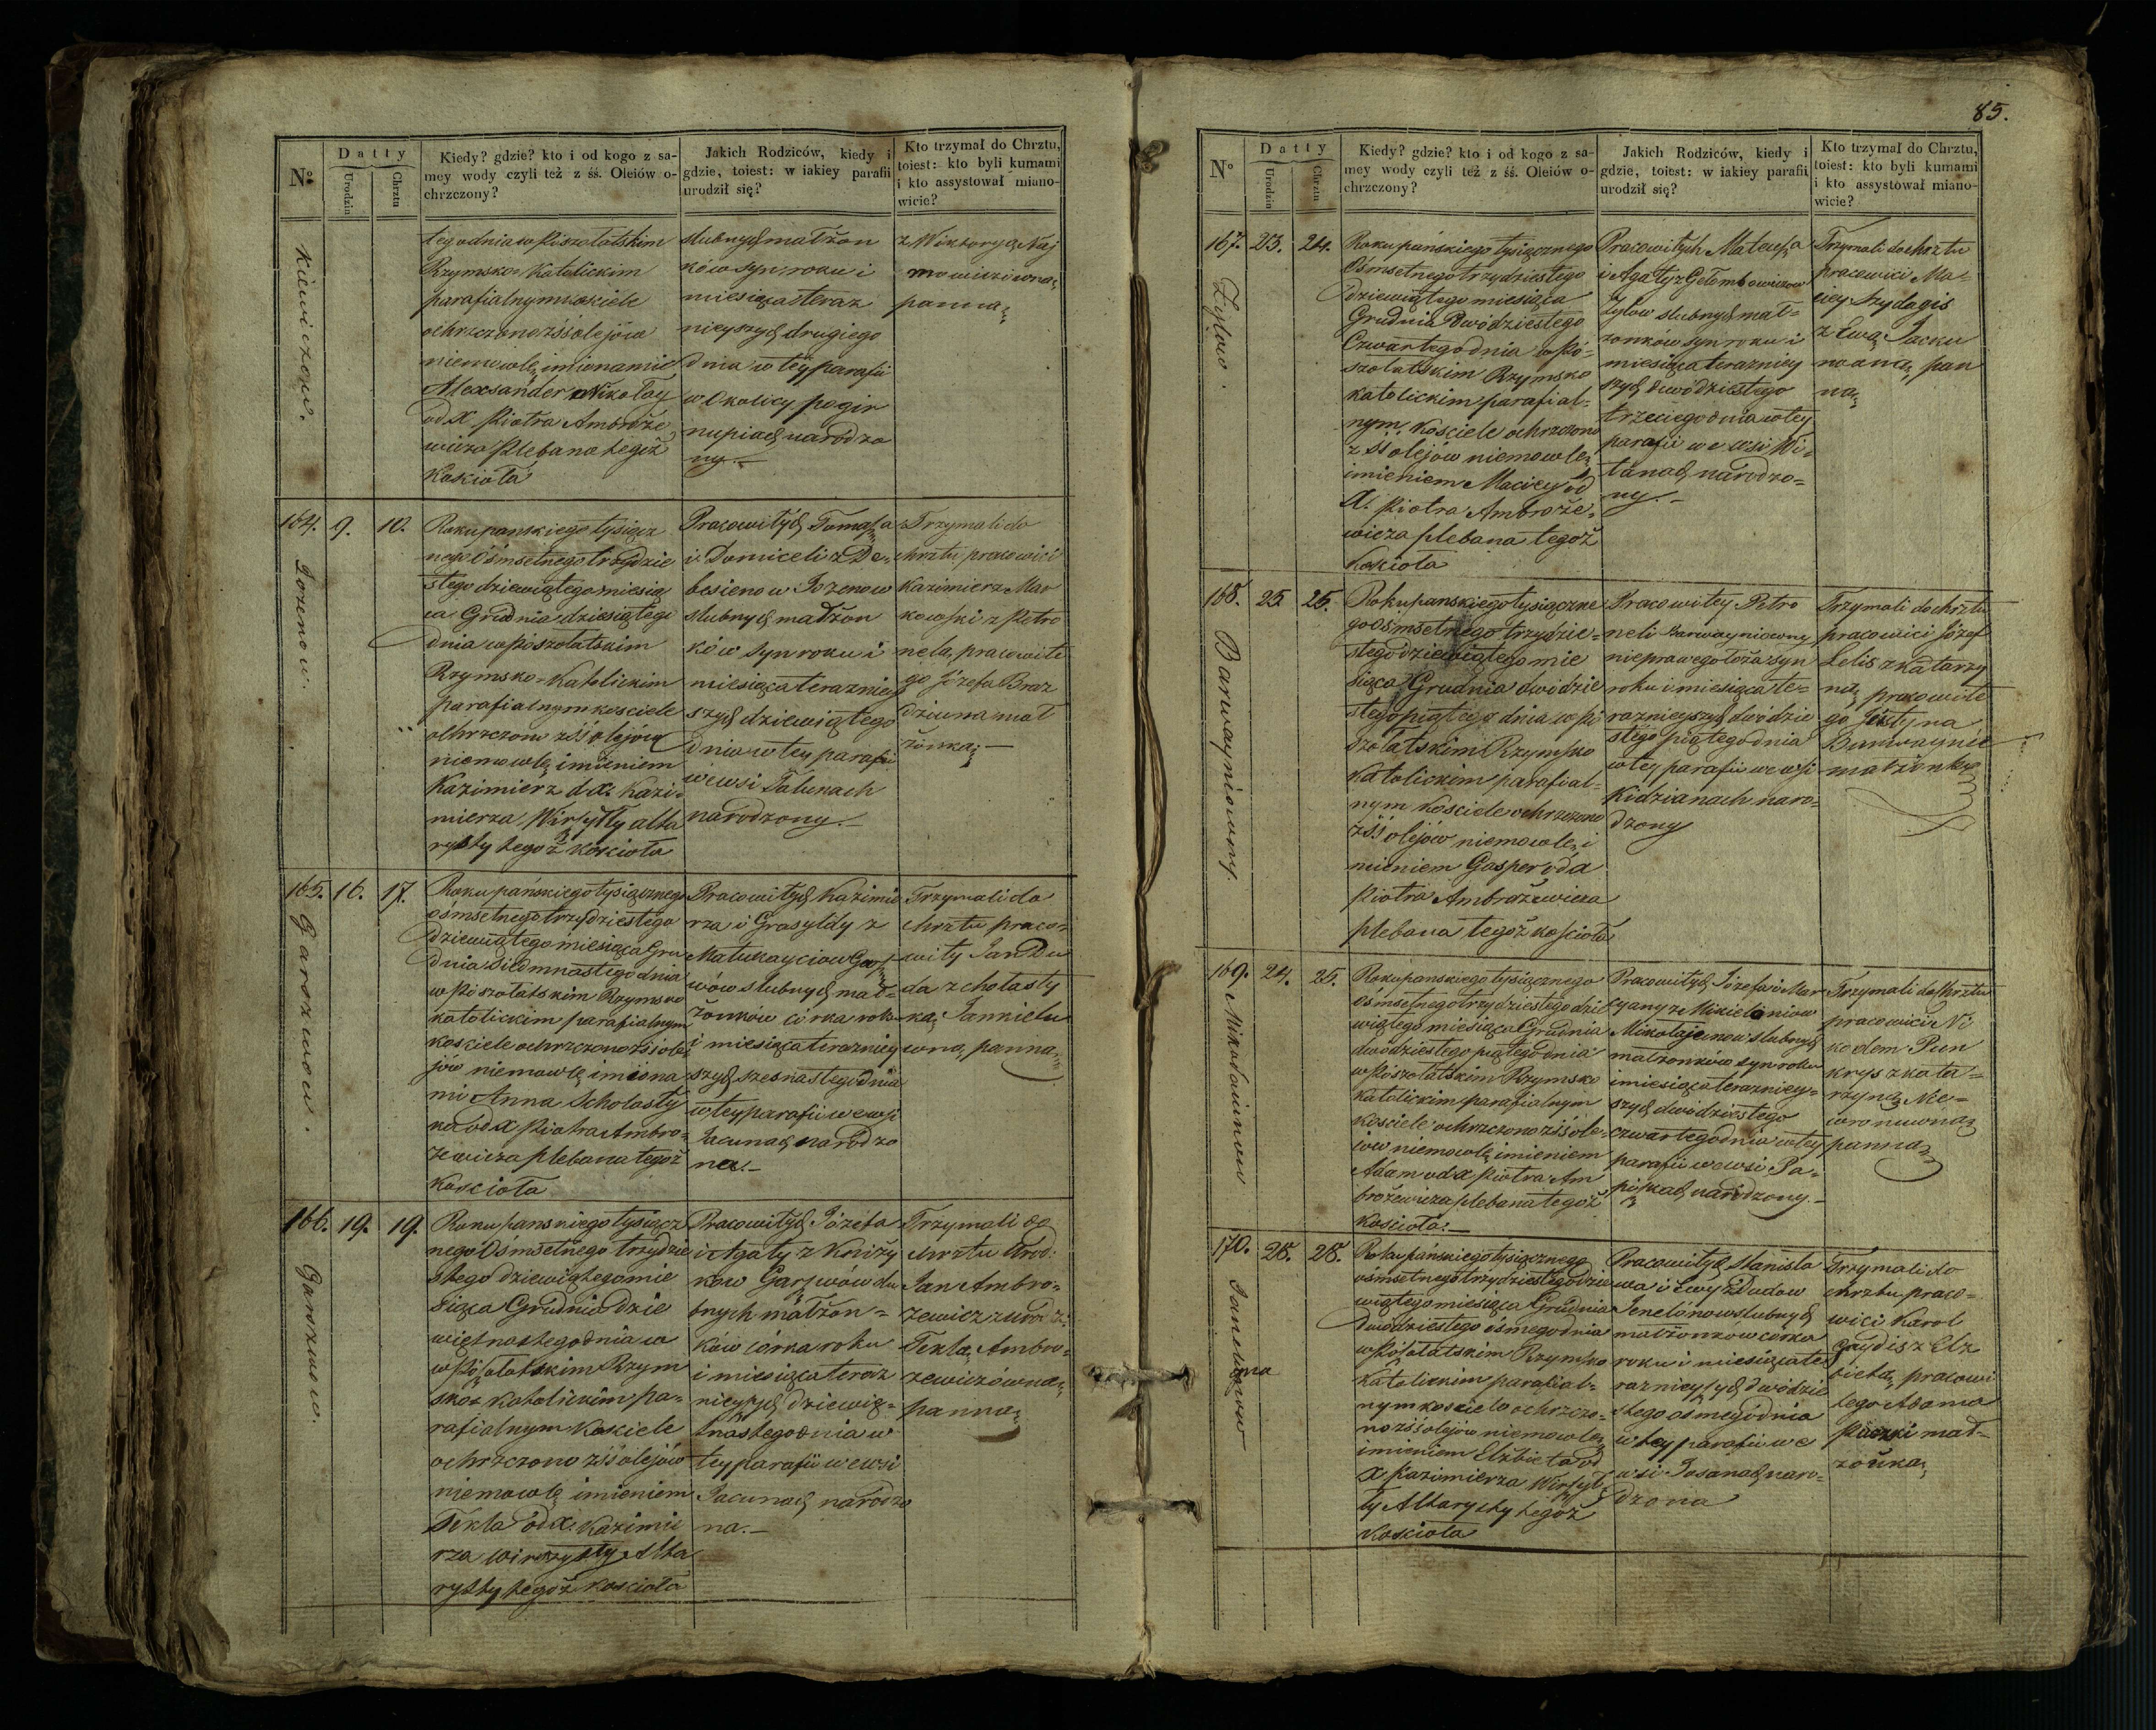 85.
Nº
Datty
Urodzin
Chrztu
Kiedy? gdzie? kto i od kogo z sa-
mey wody czyli też z śś. Oleiów o-
chrzczony?
Jakich Rodziców, kiedy i
gdzie, toiest: w iakiey parafii
urodził się?
Kto trzymał do Chrztu,
toiest: kto byli kumami
i kto assystował miano-
wicie?
tego dnia w Poszołatskim
Rzymsko Katolickim
parafialnym kosciele
ochrzczono z śś olejów
niemowle imionami
Alexsander Nikołay
od X Piotra Ambroże
wicza Plebana tegiż
Kościoła
slubnych małżon
ków syn roku i
miesiąca teraz
nieyszych drugiego
dnia w tey parafii
w Okolicy pogir
nupiach narodzo
ny.
z Wiktoryą
panną
164.
9.
10.
Roku panskiego tysiącz
nego Ośmsetnego trzydzie
stego dziewiątego miesią
ca Grudnia dziesiątego
dnia w Poszołatskim
Rzymsko-Katolickim
parafialnym kosciele
ochrzczono z śś olejów
niemowle imieniem
Kazimierz od X. Kazi
mierza Wirszyłły alta
rysty tegoż kościoła
Pracowitych Tomasza
i Domiceli z De-
besienow Jozenow
slubnych małżon
ków syn roku i
miesiąca terazniey
szych dziewiątego
dnia w tey parafii
wewsi Talunach
narodzony.
Trzymali do
chrztu pracowici
Kazimierz Mar
kowski z Petro
nelą, pracowite
go Józefa Braz
dziuna mał
żonką
165.
16.
17.
Garszwow.
Roku pańskiego tysiącznego
ośmsetnego trzydziestego
dziewiątego miesiąca Gru
dnia siedmnastego dnia
w Poszołatskim Rzymsko
katolickim parafialnym
kosciele ochrzczono z śś ole
jów niemowle imiona
mi Anna Scholasty
ka od X Piotra Ambro-
żewicza plebana tegoż
Kościoła
Pracowitych Kazimie
rza i Grasyldy z
Matukayciow Garsz
wów slubnych mał-
żonków córka roku
i miesiąca terazniey
szych szesnastego dnia
w tey parafii wewsi
Jacunach narodzo
na.
Trzymali do
chrztu praco-
wity Jan Du
da z cholasty
ką Jankielu
wną, panną
166.
19.
19.
Garszwow.
Roku panskiego tysiącz
nego Ośmsetnego trzydzie
stego dziewiątego mie
siąca Grudnia dzie
więtnastego dnia w
w Poszołatskim Rzym
sko-Katolickim pa-
rafialnym Kosciele
ochrzczono z śś olejów
niemowle imieniem
Tekla od X. Kazimie
rza Wirszyłły Alta
rysty tegoż kościoła
Pracowitych Józefa
i Agaty z Kniży
kow Garszwów slu
bnych małżon-
ków córka roku
i miesiąca teraz
nieyszych dziewię-
tnastego dnia w
tey parafii wewsi
Jacunach narodzo
na.
Trzymali do
chrztu Urod:
Jan Ambro-
żewicz z urodz:
Teklą Ambro-
żewiczówną
panną
Nº
Datty
Urodzin
Chrztu
Kiedy? gdzie? kto i od kogo z sa-
mey wody czyli też z śś. Oleiów o-
chrzczony?
Jakich Rodziców, kiedy i
gdzie, toiest: w iakiey parafii
urodził się?
Kto trzymał do Chrztu,
toiest: kto byli kumami
i kto assystował miano-
wicie?
167.
23.
24.
Żyłow.
Roku pańskiego tysiącznego
Ośmsetnego trzydziestego
dziewiątego miesiąca
Grudnia Dwódziestego
Czwartego dnia w Po-
szołatskim Rzymsko
katolickim parafial-
nym Kosciele ochrzczono
z śś olejów niemowle
imieniem Maciey od
X. Piotra Ambroże-
wicza plebana tegoż
Kościoła
Pracowitych Mateusza
i Agaty z Gołombowiczow
Żyłow slubnych mał-
żonków syn roku i
miesiąca terazniey
szych dwódziestego
trzeciego dnia w tey
parafii we wsi Wi-
tanach narodzo-
ny.
Trzymali do chrztu
pracowici Ma-
ciey Szydagis
z Ewą Jacku
pan
ną
168.
25.
25.
Barwayniowny
Roku panskiego tysiączne
go ośmsetnego trzydzie-
stego dziewiątego mie
siąca Grudnia dwódzie
stego piątego dnia w Po
szołatskim Rzymsko
Katolickim parafial-
nym kosciele ochrzczono
z śś olejów niemowle i
mieniem Gasper od X
Piotra Ambrożewicza
plebana tegoż kościoła
Pracowitey Petro
neli Barwayniowny
nieprawego łoża syn
roku i miesiąca te-
raznieyszych dwódzie
stego piątego dnia
w tey parafii we wsi
Kidzianach naro-
dzony
Trzymali do chrztu
pracowici Józef
Lelis z Katarzy
ną, pracowite
go
Barwaynie
małżonką
169.
24.
25.
Roku panskiego tysiącznego
ośmsetnego trzydziestego dzie
wiątego miesiąca Grudnia
dwódziestego piątego dnia
w Poszołatskim Rzymsko
Katolickim parafialnym
Kościele ochrzczono z śś ole-
jow niemowle imieniem
Adam od X Piotra Am
brożewicza plebana tegoż
Kościoła.
Pracowitych Józefa i Mar
cyany z Mikieloniow
Mikołajunow slubnych
małżonków syn roku
i miesiąca terazniey-
szych dwódziestego
czwartego dnia w tey
parafii we wsi Pa-
piszkach narodzony.
Trzymali do Chrztu
pracowici Ni
kodem Pun
krys z Kata-
rzyną Nie-
wroniwną
panną
170.
28.
28.
Roku pańskiego tysiącznego
ośmsetnego trzydziestego dzie
wiątego miesiąca Grudnia
Dwódziestego ósmego dnia
w Poszołatskim Rzymsko
Katolickim parafial-
nym kosciele ochrzczo-
no z śś olejów niemowle
imieniem Elżbieta od
X Kazimierza Wirszył
ły Altarysty tegoż
Kościoła
Pracowitych Stanisła
wa i Ewy z Dudow
Janelonow slubnych
małżonkow córka
roku i miesiąca te
raznieyszych dwódzie
stego osmego dnia
w tey parafii we
wsi Josanach naro-
dzona
Trzymali do
chrztu praco-
wici Karol
Gaydis z Elż
bietą, pracowi
tego Adama
mał-
żonką